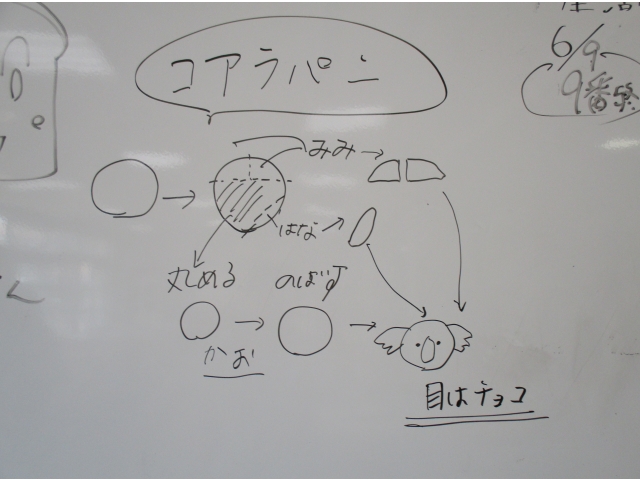 コアラパン
6/9
9番
みみ
はな
丸める
のばす
かお
目はチョコ